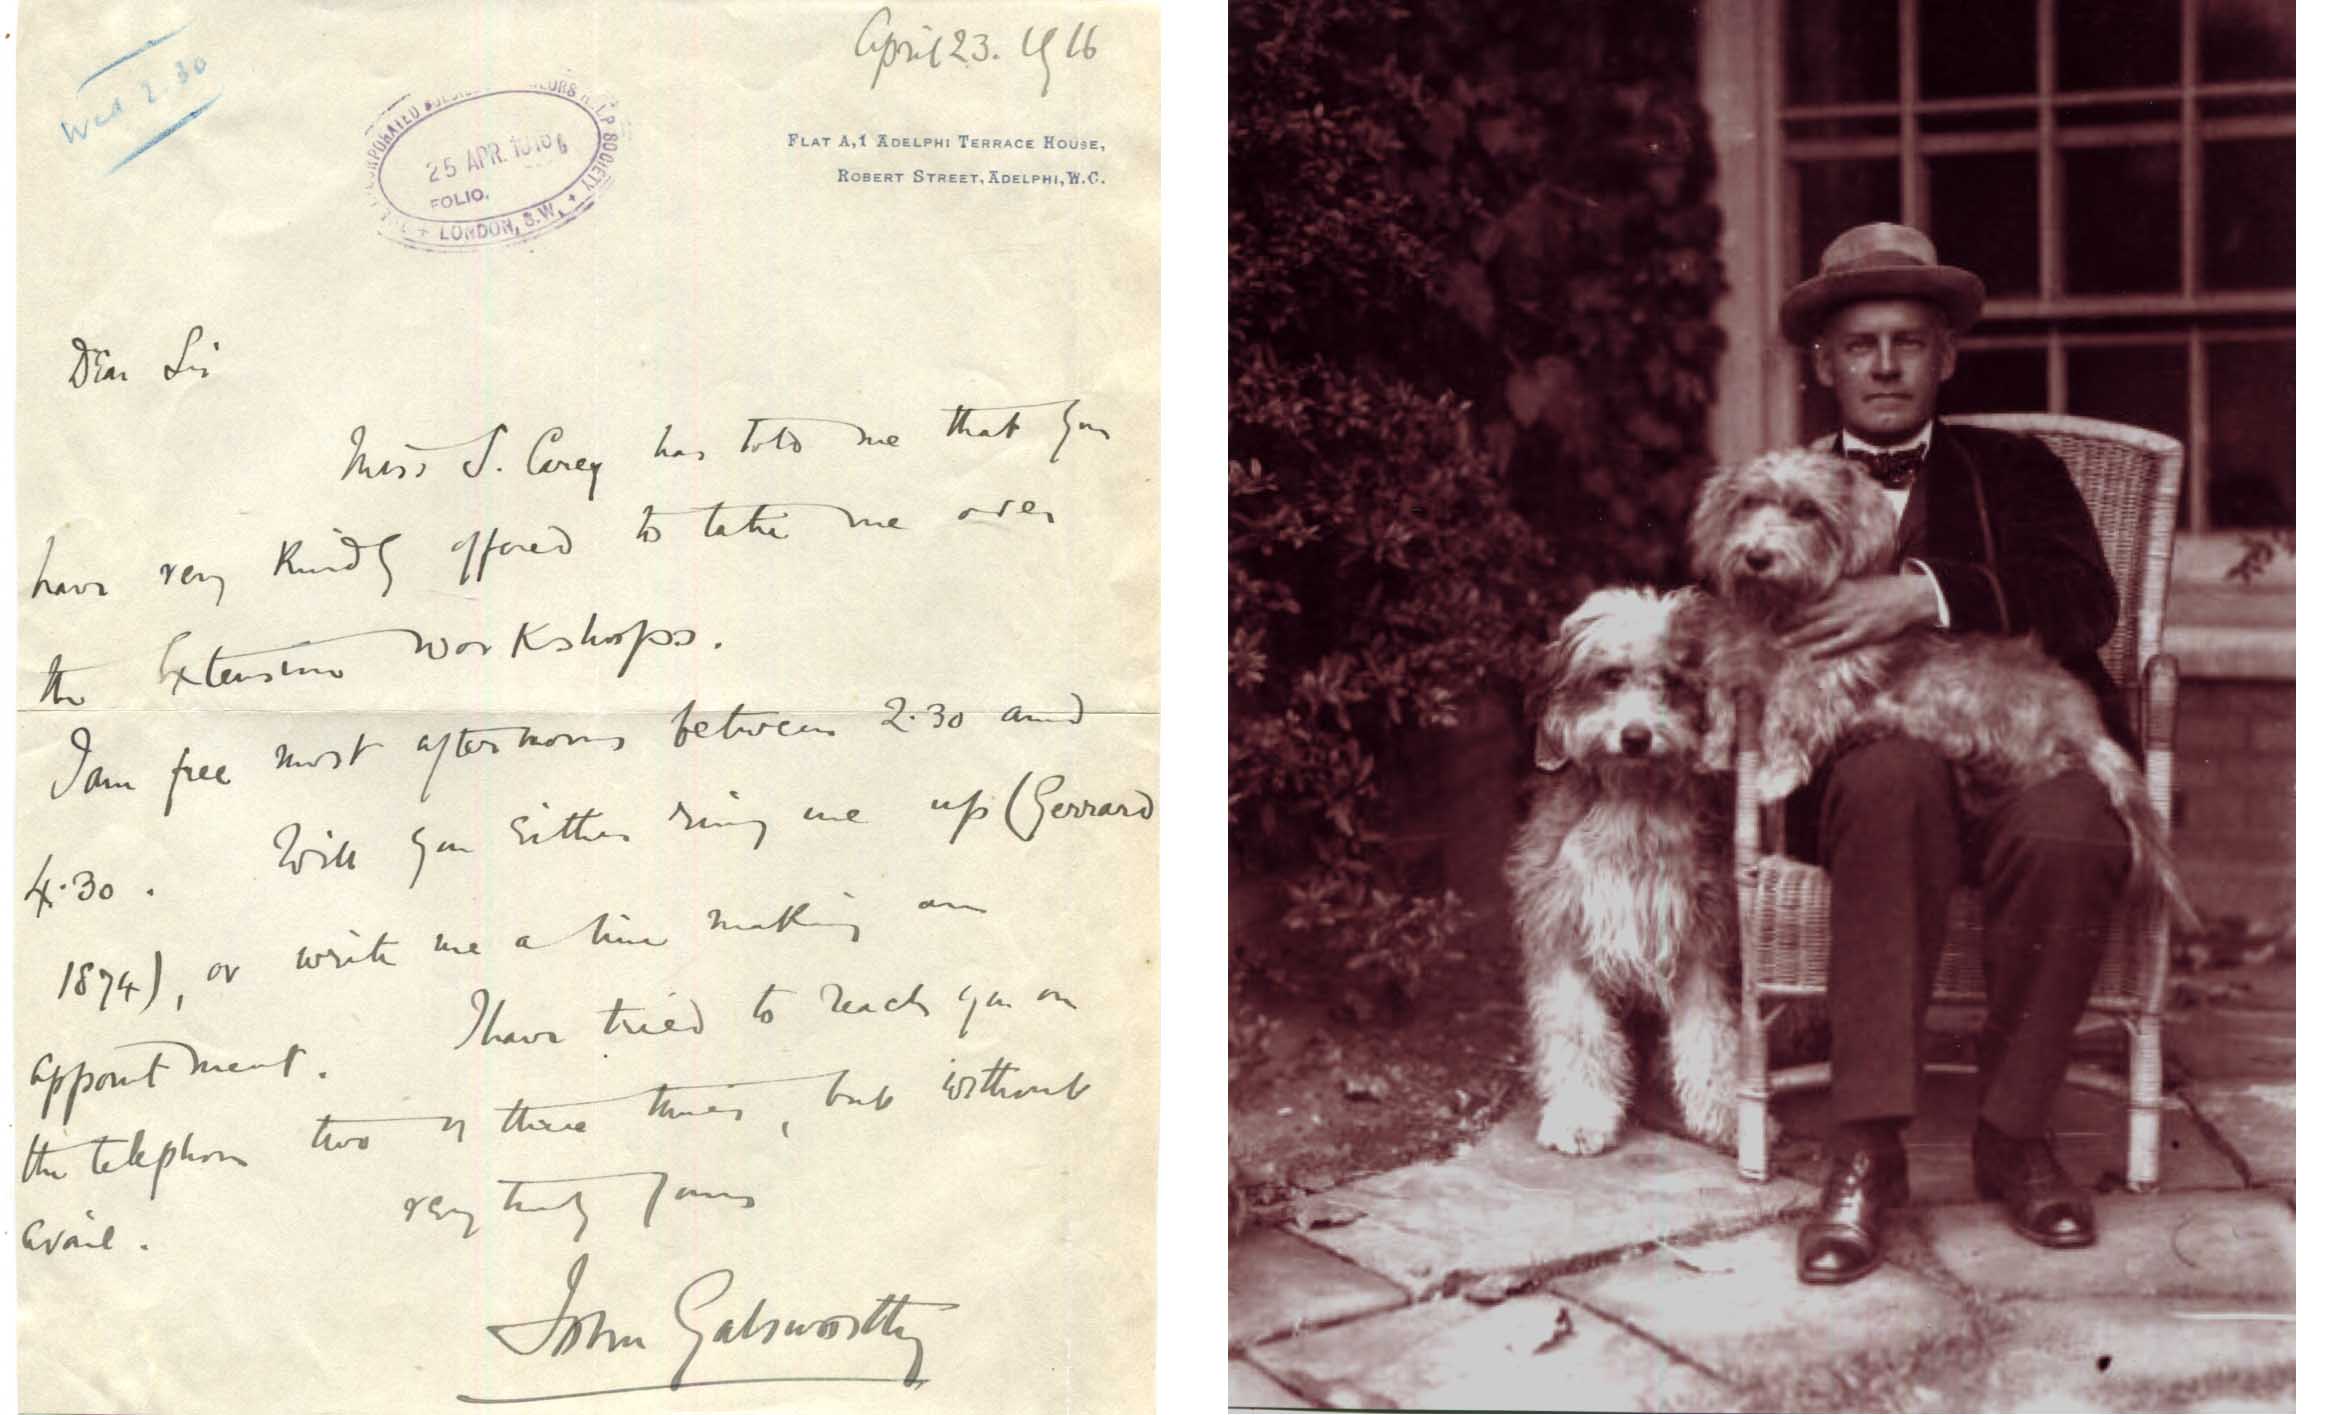 April 23. 1916
Wed 2.30
INCORPORATED SOLDIERS HELP SOCIETY
25 APR. 1916
FOLIO.
+ LONDON, S.W. +
FLAT A,1 ADELPHI TERRACE HOUSE,
ROBERT STREET, ADELPHI, W.C.
Dear Sir
Miss S. Carey has told me that you
have very kindly offered to take me over
the Extension workshops.
I am free most afternoons between 2.30 and
4.30. Will you either ring me up (Gerrard
1874), or write me a line making an
appointment. I have tried to reach you on
the telephone two or three times, but without
avail. very truly yours
John Galsworthy